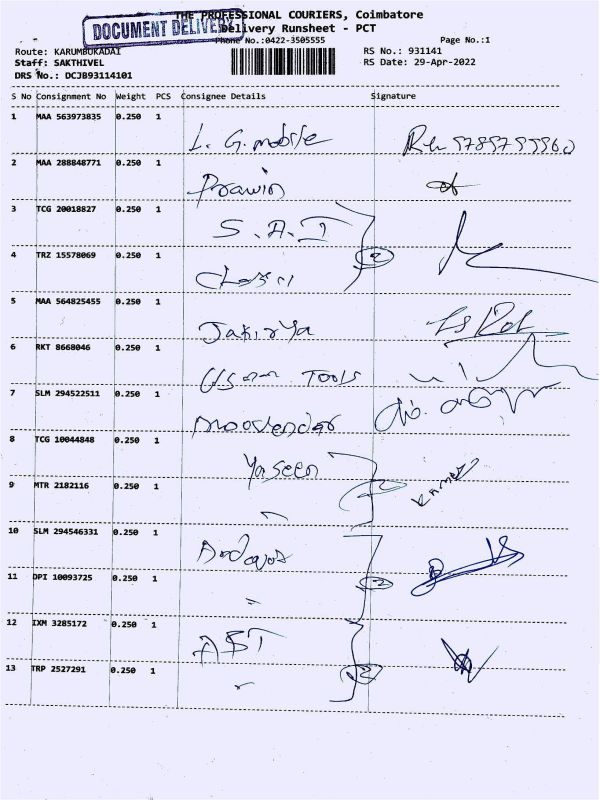 DOCUMENT DELIVERY
THE PROFESSIONAL COURIERS, Coimbatore
Delivery Runsheet - PCT
Phone No.:0422-3505555 Page No.:1
Route: KARUMBUKADAI RS No.: 931141
Staff: SAKTHIVEL RS Date: 29-Apr-2022
DRS No.: DCJB93114101
S No Consignment No Weight PCS Consignee Details Signature
1 MAA 563973835 0.250 1
L. G. mobile
2 MAA 288848771 0.250 1
Prawin
3 TCG 20018827 0.250 1
S.A.I
4 TRZ 15578069 0.250 1
2
5 MAA 564825455 0.250 1
Jakirya
6 RKT 8668046 0.250 1
Usman Tools
7 SLM 294522511 0.250 1
Moovendar
8 TCG 10044848 0.250 1
Yaseen
9 MTR 2182116 0.250 1
10 SLM 294546331 0.250 1
11 DPI 10093725 0.250 1
2
12 IXM 3285172 0.250 1
AST
13 TRP 2527291 0.250 1
2